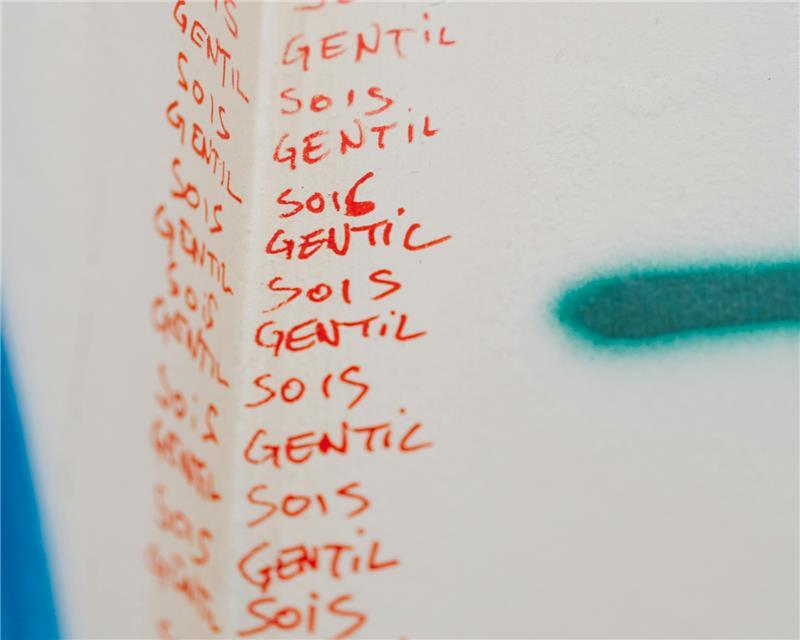 GENTIL
SOIS
GENTIL
SOIS
GENTIL
SOIS
GENTIL
SOIS
GENTIL
SOIS
GENTIL
GENTIL
SOIS
GENTIL
SOIS
GENTIL
SOIS
GENTIL
SOIS
GENTIL
SOIS
GENTIL
SOIS